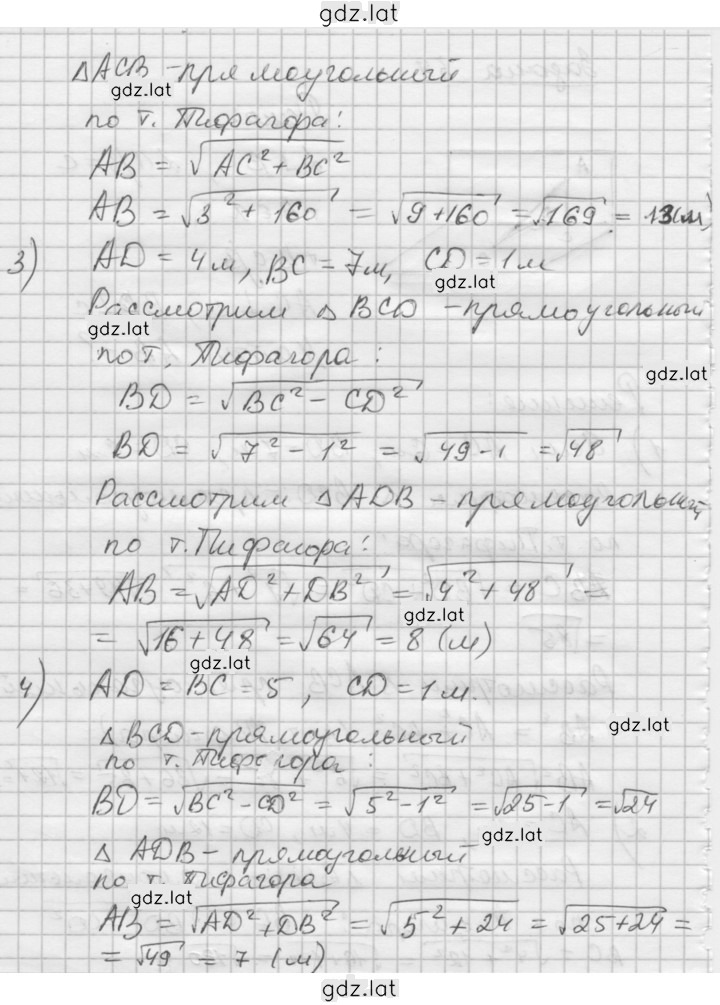 gdz.lat
△ACB - прямоугольный
gdz.lat
по т. Пифагора:
AB = √AC² + BC²
AB = √3² + 160 = √9+160 = √169 = 13(м)
3) AD = 4м, BC = 7м, CD = 1м
gdz.lat
Рассмотрим △BCD - прямоугольный
gdz.lat
по т. Пифагора:
gdz.lat
BD = √BC² - CD²
BD = √7² - 1² = √49-1 = √48
Рассмотрим △ADB - прямоугольный,
по т. Пифагора:
AB = √AD² + DB² = √4² + 48 =
gdz.lat
= √16+48 = √64 = 8 (м)
gdz.lat
4) AD = BC = 5, CD = 1м.
gdz.lat
△BCD - прямоугольный
по т. Пифагора:
BD = √BC² - CD² = √5² - 1² = √25-1 = √24
gdz.lat
△ADB - прямоугольный
по т. Пифагора
gdz.lat
AB = √AD² + DB² = √5² + 24 = √25+24 =
= √49 = 7 (м)
gdz.lat